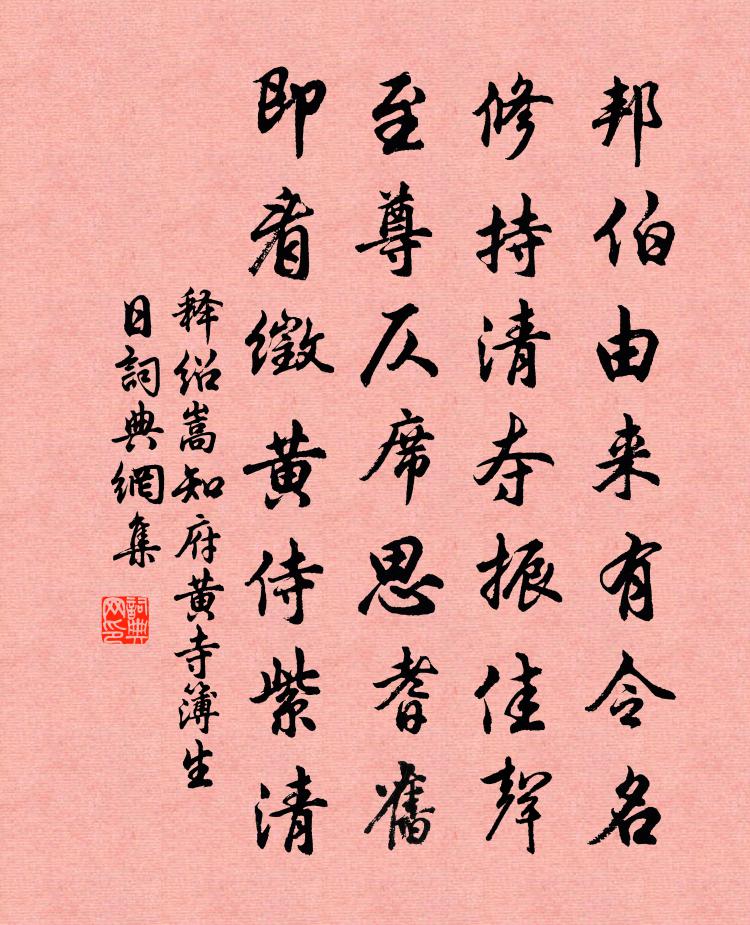 邦伯由来有令名
修持清夺振佳聲
至尊仄席思耆舊
即看徵黄侍紫清
释绍嵩知府黄寺簿生
日詞典網集
詞典网印